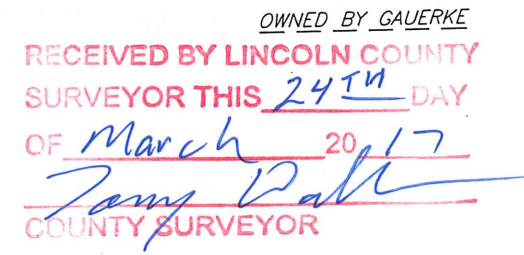 OWNED BY GAUERKE
RECEIVED BY LINCOLN COUNTY
SURVEYOR THIS 24TH DAY
OF March 20 17
COUNTY SURVEYOR